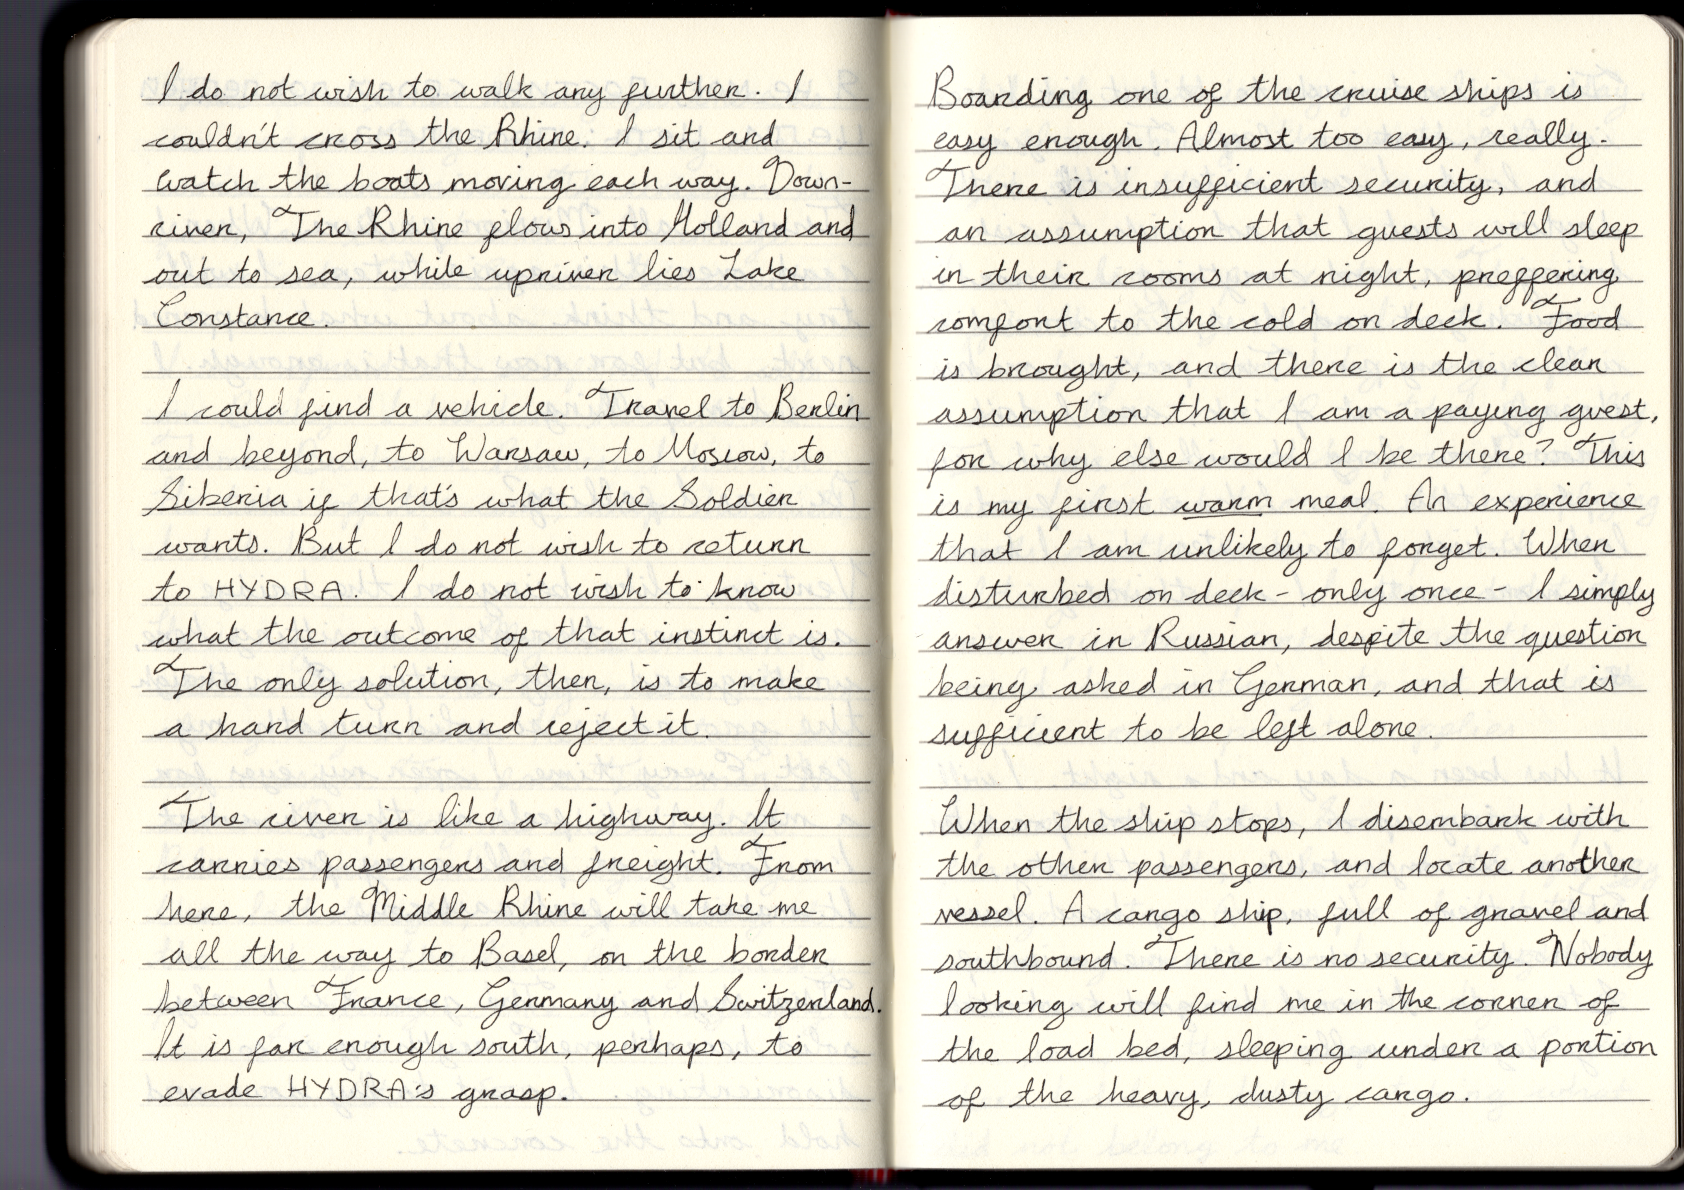 I do not wish to walk any further. I
couldn't cross the Rhine. I sit and
watch the boats moving each way. Down-
river, The Rhine flows into Holland and
out to sea, while upriver lies Lake
Constance.
I could find a vehicle. Travel to Berlin
and beyond, to Warsaw, to Moscow, to
Siberia if that's what the Soldier
wants. But I do not wish to return
to HYDRA. I do not wish to know
what the outcome of that instinct is.
The only solution, then, is to make
a hard turn and reject it.
The river is like a highway. It
carries passengers and freight. From
here, the Middle Rhine will take me
all the way to Basel, on the border
between France, Germany and Switzerland.
It is far enough south, perhaps, to
evade HYDRA's grasp.
Boarding one of the cruise ships is
easy enough. Almost too easy, really.
There is insufficient security, and
an assumption that guests will sleep
in their rooms at night, preffering
comfort to the cold on deck. Food
is brought, and there is the clear
assumption that I am a paying guest,
for why else would I be there? This
is my first warm meal. An experience
that I am unlikely to forget. When
disturbed on deck - only once - I simply
answer in Russian, despite the question
being asked in German, and that is
sufficient to be left alone.
When the ship stops, I disembark with
the other passengers, and locate another
vessel. A cargo ship, full of gravel and
southbound. There is no security. Nobody
looking will find me in the corner of
the load bed, sleeping under a portion
of the heavy, dusty cargo.